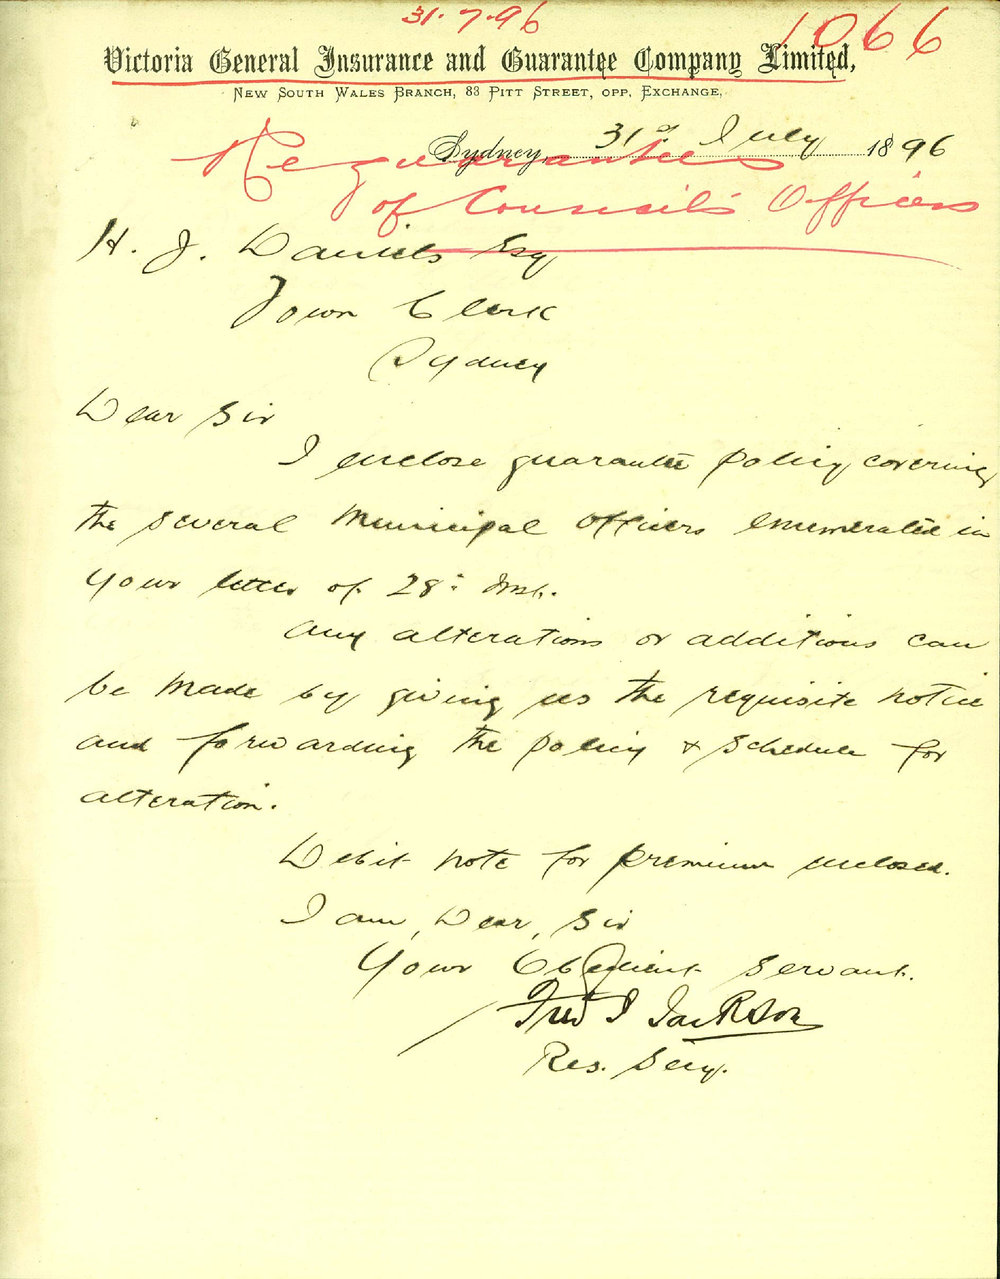 31.7.96
1066
Victoria General Insurance and Guarantee Company Limited,
NEW SOUTH WALES BRANCH, 83 PITT STREET, OPP. EXCHANGE.
Sydney, 31st July 1896
Re guarantees
of Council's Officers
H. J. Daniels Esq
Town Clerk
Sydney
Dear Sir
I enclose guarantee policy covering
the several Municipal Officers enumerated in
your letter of 28th Inst.
Any alterations or additions can
be made by giving us the requisite notice
and forwarding the policy & schedule for
alteration.
Debit note for premium enclosed.
I am, Dear, Sir
Your Obedient Servant.
Fred J Jackson
Res. Secy.